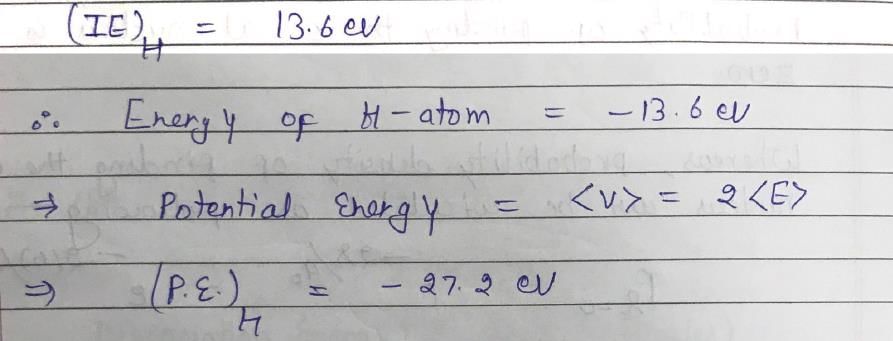 (IE)H = 13.6 eV
∴ Energy of H-atom = -13.6 eV
⇒ Potential Energy = <V> = 2<E>
⇒ (P.E.)H = -27.2 eV